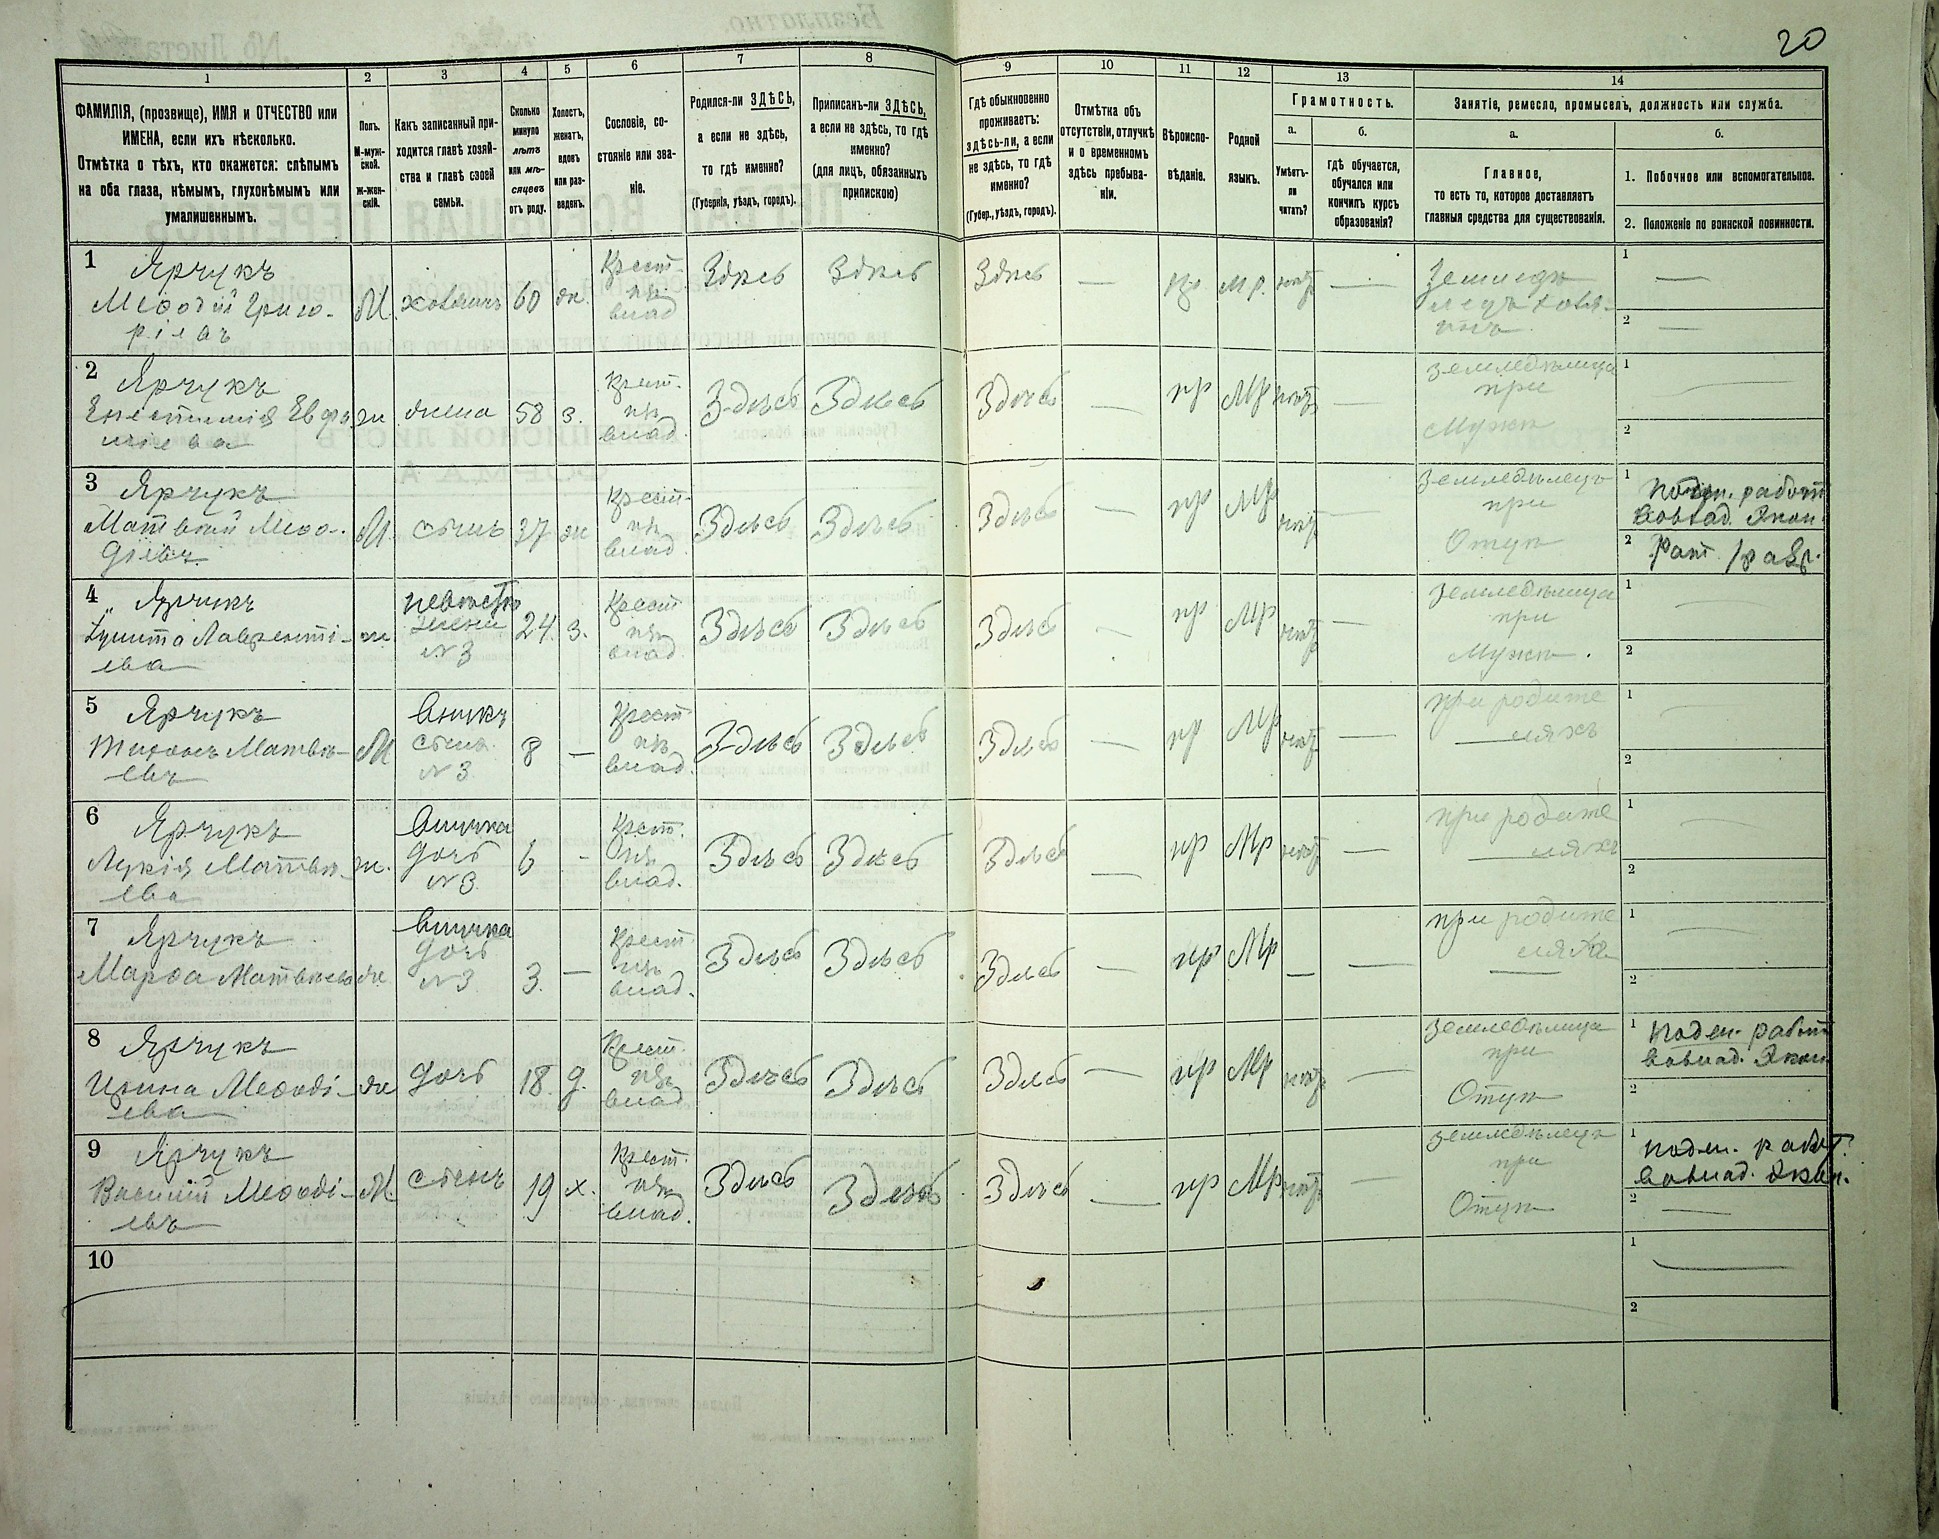 20
1 2 3 4 5 6 7 8 9 10 11 12 13 14
ФАМИЛІЯ, (прозвище), ИМЯ и ОТЧЕСТВО или
ИМЕНА, если ихъ нѣсколько.
Отмѣтка о тѣхъ, кто окажется: слѣпымъ
на оба глаза, нѣмымъ, глухонѣмымъ или
умалишеннымъ.
Полъ.
М-муж-
ской.
ж-жен-
скій.
Какъ записанный при-
ходится главѣ хозяй-
ства и главѣ своей
семьи.
Сколько
минуло
лѣтъ
или мѣ-
сяцевъ
отъ роду.
Холостъ,
женатъ,
вдовъ
или раз-
веденъ.
Сословіе, со-
стояніе или зва-
ніе.
Родился-ли ЗДѢСЬ,
а если не здѣсь,
то гдѣ именно?
(Губернія, уѣздъ, городъ).
Приписанъ-ли ЗДѢСЬ,
а если не здѣсь, то гдѣ
именно?
(для лицъ, обязанныхъ
припискою)
Гдѣ обыкновенно
проживаетъ:
здѣсь-ли, а если
не здѣсь, то гдѣ
именно?
(Губер., уѣздъ, городъ).
Отмѣтка объ
отсутствіи, отлучкѣ
и о временномъ
здѣсь пребыва-
ніи.
Вѣроиспо-
вѣданіе.
Родной
языкъ.
Грамотность.
а.
Умѣетъ-
ли
читать?
б.
гдѣ обучается,
обучался или
кончилъ курсъ
образованія?
Занятіе, ремесло, промыселъ, должность или служба.
а.
Главное,
то есть то, которое доставляетъ
главныя средства для существованія.
б.
1. Побочное или вспомогательное.
2. Положеніе по воинской повинности.
1 Ярчукъ
Меѳодій Григо-
ріевъ
М. хозяинъ 60 ж.
Крест.
влад
Здѣсь Здѣсь Здѣсь — пр. мр. нѣтъ —
1 —
2 —
2 Ярчукъ
ж. жена 58 з.
Крест.
влад.
Здѣсь Здѣсь Здѣсь — пр Мр нѣтъ —
земледѣлица
при
Мужѣ
1
2
3 Ярчукъ
Матвѣй Меѳо-
діевъ
М. сынъ 37 ж
Крест-
влад.
Здѣсь Здѣсь Здѣсь — пр Мр нѣтъ —
земледѣлецъ
при
Отцѣ
1 Поден. работ
2
4 Ярчукъ
Лаврентi-
ева
ж. невѣстка
жена
№3
24. з.
Крест
влад.
Здѣсь Здѣсь Здѣсь — пр Мр нѣтъ —
земледѣлица
при
Мужѣ.
1
2
5 Ярчукъ
Матвѣ-
евъ
М внукъ
сынъ
№3
8 —
Крест
влад.
Здѣсь Здѣсь Здѣсь — пр Мр нѣтъ —
при родите
ляхъ
1
2
6 Ярчукъ
Лукія Матвѣ-
ева
ж. внучка
дочь
№3
6 -
Крест.
влад.
Здѣсь Здѣсь Здѣсь — пр Мр нѣтъ —
при родите
ляхъ
1
2
7 Ярчукъ
Марѳа Матвѣева
ж внучка
дочь
№3
3. —
Крест.
влад.
Здѣсь Здѣсь Здѣсь — пр Мр — —
при родите
ляхъ
1
2
8 Ярчукъ
Ирина Меѳоді-
ева
ж дочь 18. д.
Крест.
влад
Здѣсь Здѣсь Здѣсь — пр Мр нѣтъ —
земледѣлица
при
Отцѣ
1 Поден. работ
2
9 Ярчукъ
Василій Меѳоді-
евъ
М. сынъ 19 х.
Крест.
влад.
Здѣсь Здѣсь Здѣсь — пр Мр нѣтъ —
земледѣлецъ
при
Отцѣ
1 Поден. работ.
2 —
10
1 —
2